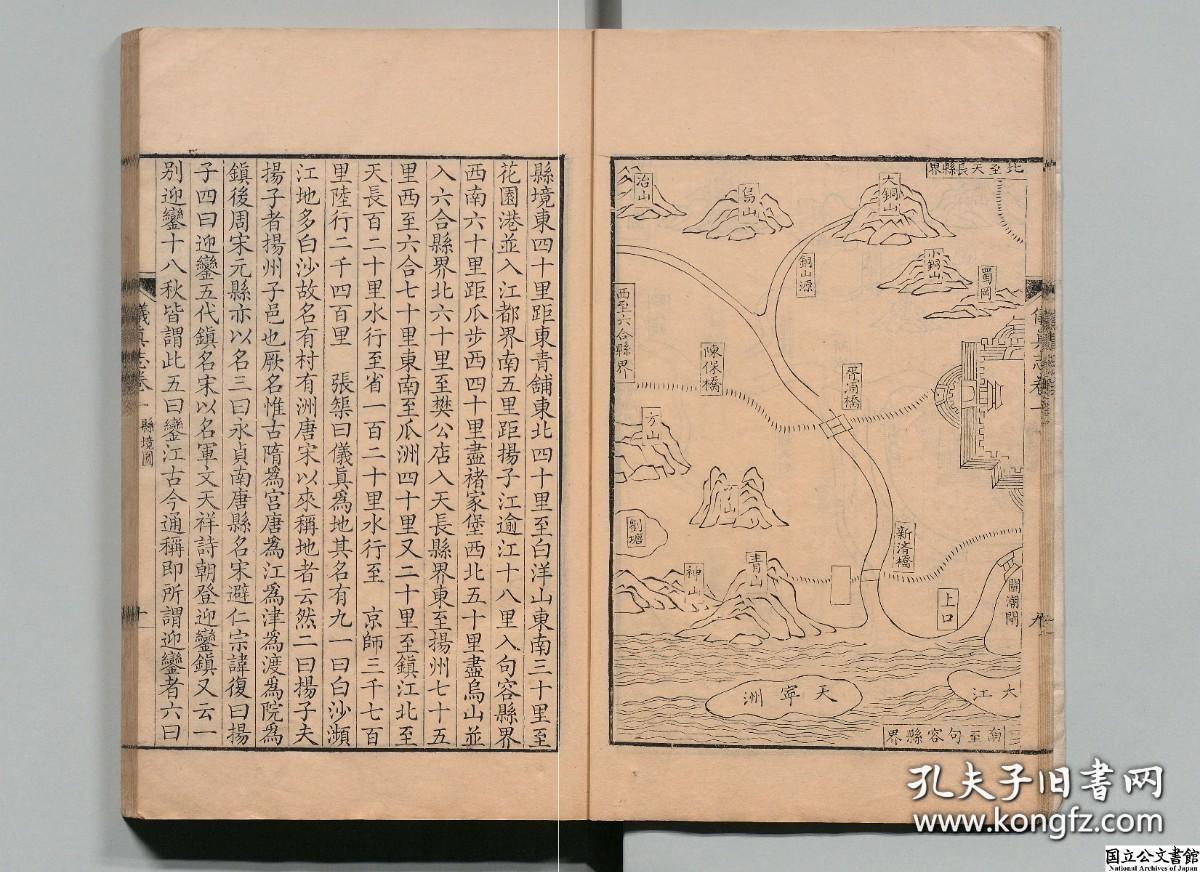 北至天長縣界
大銅山
烏山
冶山
小銅山
蜀岡
銅山源
西至六合縣界
陳保橋
胥浦橋
方山
劉塘
新濟橋
青山
神山
上口
關潮閘
天寧洲
大江
南至句容縣界
儀真志卷一
縣境東四十里距東青舖東北四十里至白洋山東南三十里至
花園港並入江都界南五里距揚子江逾江十八里入句容縣界
西南六十里距瓜步西四十里盡禇家堡西北五十里盡烏山並
入六合縣界北六十里至樊公店入天長縣界東至揚州七十五
里西至六合七十里東南至瓜洲四十里又二十里至鎮江北至
天長百二十里水行至省一百二十里水行至 京師三千七百
里陸行二千四百里 張榘曰儀真爲地其名有九一曰白沙瀕
江地多白沙故名有村有洲唐宋以來稱地者云然二曰揚子夫
揚子者揚州子邑也厥名惟古隋爲宮唐爲江爲津爲渡爲院爲
鎮後周宋元縣亦以名三曰永貞南唐縣名宋避仁宗諱復曰揚
子四曰迎鑾五代鎮名宋以名軍文天祥詩朝登迎鑾鎮又云一
别迎鑾十八秋皆謂此五曰鑾江古今通稱即所謂迎鑾者六曰
儀真志卷一
縣境圖
十
孔夫子旧书网
www.kongfz.com
国立公文書館
National Archives of Japan